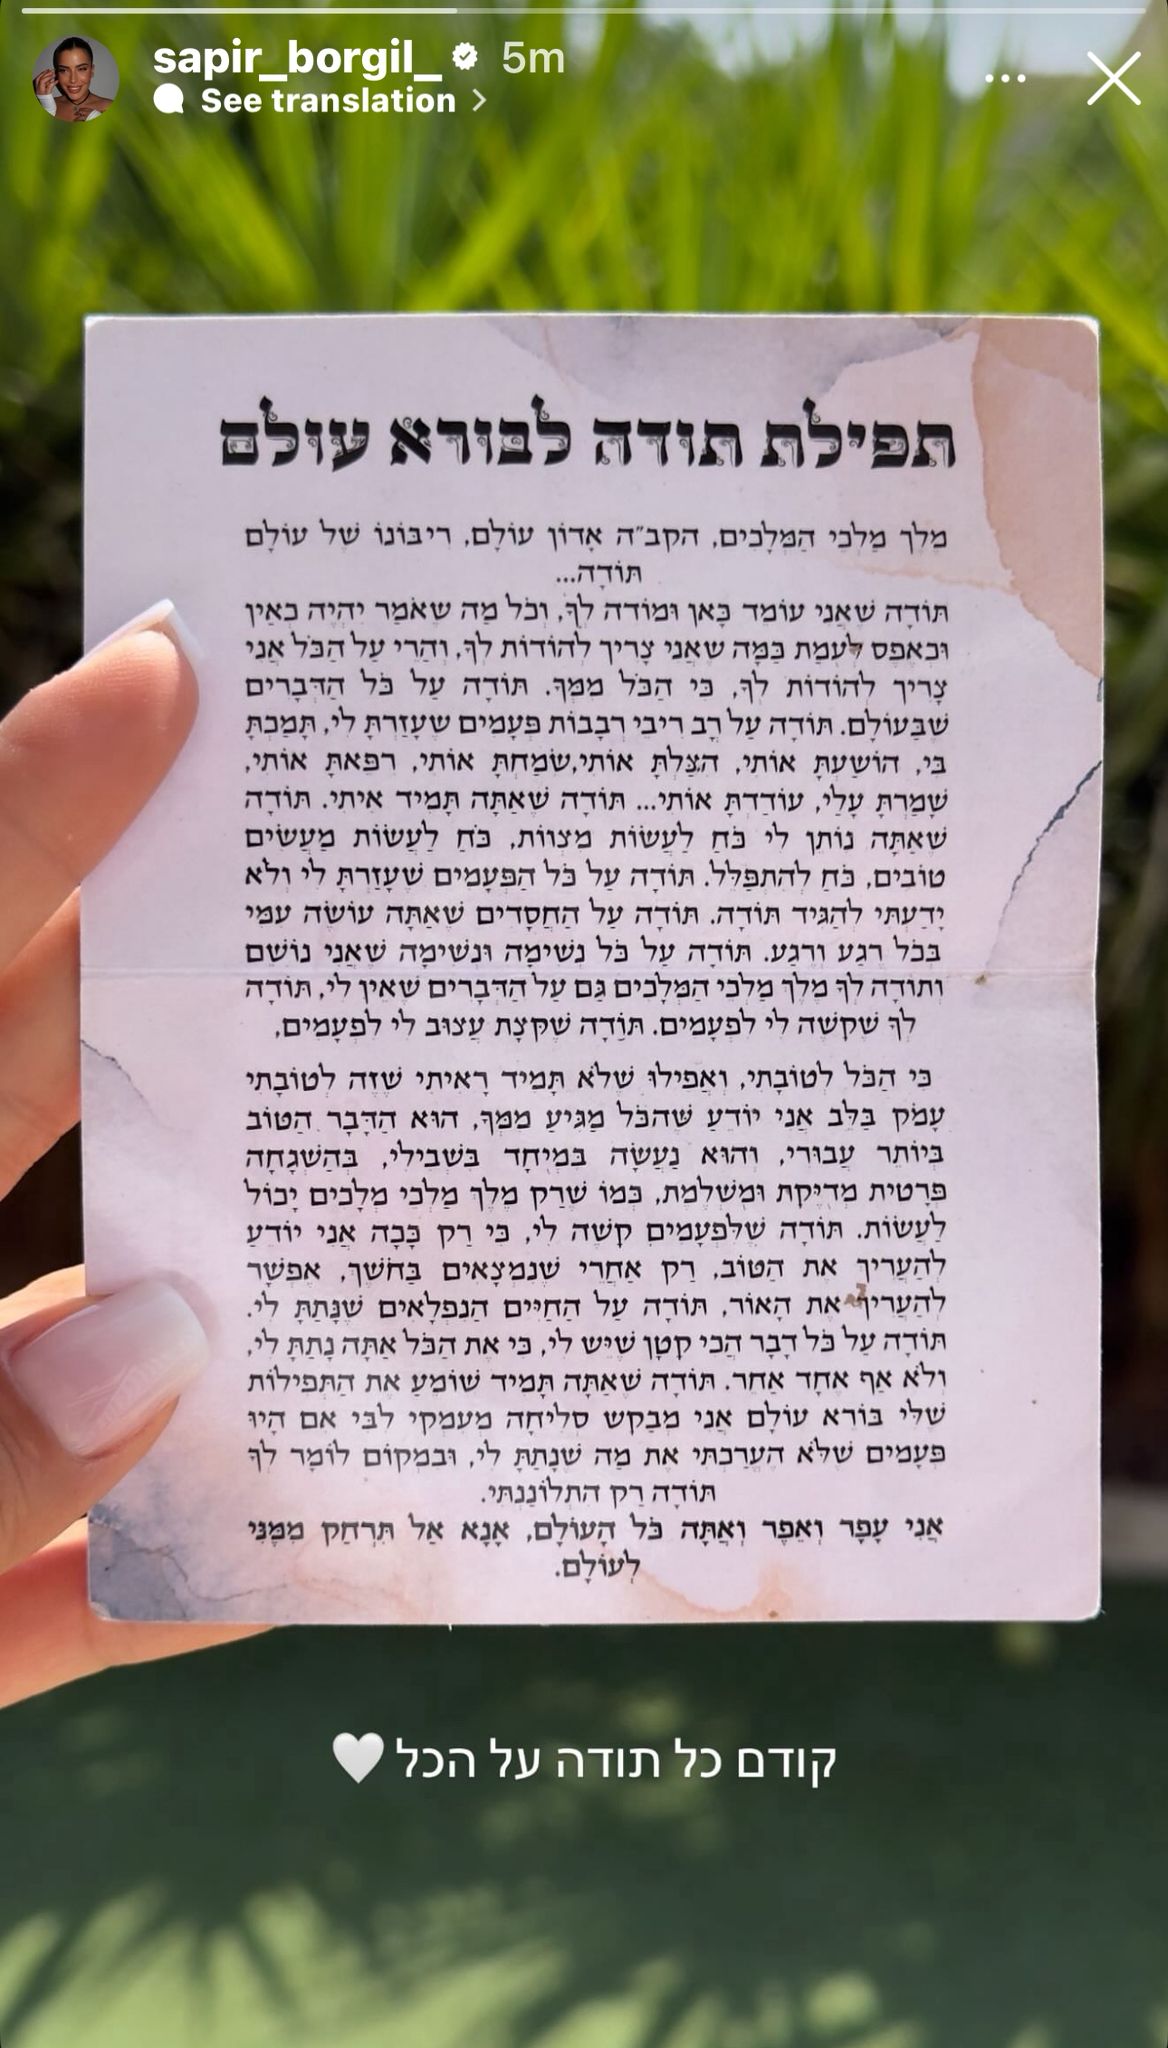 sapir_borgil_ 5m
See translation
תפילת תודה לבורא עולם
מֶלֶךְ מַלְכֵי הַמְּלָכִים, הקב"ה אָדוֹן עוֹלָם, רִיבּוֹנוֹ שֶׁל עוֹלָם
תּוֹדָה...
תּוֹדָה שֶׁאֲנִי עוֹמֵד כָּאן וּמוֹדֶה לְךָ, וְכֹל מַה שֶׁאֹמַר יִהְיֶה כְּאַיִן
וּכְאֶפֶס לְעֻמַּת כַּמָּה שֶׁאֲנִי צָרִיךְ לְהוֹדוֹת לְךָ, וַהֲרֵי עַל הַכֹּל אֲנִי
צָרִיךְ לְהוֹדוֹת לְךָ, כִּי הַכֹּל מִמְּךָ. תּוֹדָה עַל כֹּל הַדְּבָרִים
שֶׁבָּעוֹלָם. תּוֹדָה עַל רָב רִיבֵי רְבָבוֹת פְּעָמִים שֶׁעָזַרְתָּ לִי, תָּמַכְתָּ
בִּי, הוֹשַׁעְתָּ אוֹתִי, הִצַּלְתָּ אוֹתִי,שִׂמַּחְתָּ אוֹתִי, רִפֵּאתָ אוֹתִי,
שָׁמַרְתָּ עָלַי, עוֹדַדְתָּ אוֹתִי... תּוֹדָה שֶׁאַתָּה תָּמִיד אִיתִּי. תּוֹדָה
שֶׁאַתָּה נוֹתֵן לִי כֹּחַ לַעֲשׂוֹת מִצְווֹת, כֹּחַ לַעֲשׂוֹת מַעֲשִׂים
טוֹבִים, כֹּחַ לְהִתְפַּלֵּל. תּוֹדָה עַל כֹּל הַפְּעָמִים שֶׁעָזַרְתָּ לִי וְלֹא
יָדַעְתִּי לְהַגִּיד תּוֹדָה. תּוֹדָה עַל הַחֲסָדִים שֶׁאַתָּה עוֹשֶׂה עִמִּי
בְּכֹל רֶגַע וָרֶגַע. תּוֹדָה עַל כֹּל נְשִׁימָה וּנְשִׁימָה שֶׁאֲנִי נוֹשֵׁם
וְתוֹדָה לְךָ מֶלֶךְ מַלְכֵי הַמְּלָכִים גַּם עַל הַדְּבָרִים שֶׁאֵין לִי, תּוֹדָה
לְךָ שֶׁקָּשֶׁה לִי לִפְעָמִים. תּוֹדָה שֶׁקְּצָת עָצוּב לִי לִפְעָמִים,
כִּי הַכֹּל לְטוֹבָתִי, וַאֲפִילוּ שֶׁלֹּא תָּמִיד רָאִיתִי שֶׁזֶּה לְטוֹבָתִי
עָמֹק בַּלֵּב אֲנִי יוֹדֵעַ שֶׁהַכֹּל מַגִּיעַ מִמְּךָ, הוּא הַדָּבָר הַטּוֹב
בְּיוֹתֵר עֲבוּרִי, וְהוּא נַעֲשָׂה בִּמְיֻחָד בִּשְׁבִילִי, בְּהַשְׁגָּחָה
פְּרָטִית מְדֻיֶּקֶת וּמֻשְׁלֶמֶת, כְּמוֹ שֶׁרַק מֶלֶךְ מַלְכֵי מְלָכִים יָכוֹל
לַעֲשׂוֹת. תּוֹדָה שֶׁלִּפְעָמִים קָשֶׁה לִי, כִּי רַק כָּכָה אֲנִי יוֹדֵעַ
לְהַעֲרִיךְ אֶת הַטּוֹב, רַק אַחֲרֵי שֶׁנִּמְצָאִים בַּחֹשֶׁךְ, אֶפְשָׁר
לְהַעֲרִיךְ אֶת הָאוֹר, תּוֹדָה עַל הַחַיִּים הַנִּפְלָאִים שֶׁנָּתַתָּ לִי.
תּוֹדָה עַל כֹּל דָּבָר הֲכִי קָטָן שֶׁיֵּשׁ לִי, כִּי אֶת הַכֹּל אַתָּה נָתַתָּ לִי,
וְלֹא אַף אֶחָד אַחֵר. תּוֹדָה שֶׁאַתָּה תָּמִיד שׁוֹמֵעַ אֶת הַתְּפִילוֹת
שֶׁלִּי בּוֹרֵא עוֹלָם אֲנִי מְבַקֵּשׁ סְלִיחָה מֵעִמְקֵי לִבִּי אִם הָיוּ
פְּעָמִים שֶׁלֹּא הֶעֱרַכְתִּי אֶת מַה שֶׁנָּתַתָּ לִי, וּבִמְקוֹם לוֹמָר לְךָ
תּוֹדָה רַק הִתְלוֹנַנְתִּי.
אֲנִי עָפָר וָאֵפֶר וְאַתָּה כֹּל הָעוֹלָם, אָנָא אַל תִּרְחַק מִמֶּנִּי
לְעוֹלָם.
קודם כל תודה על הכל🤍